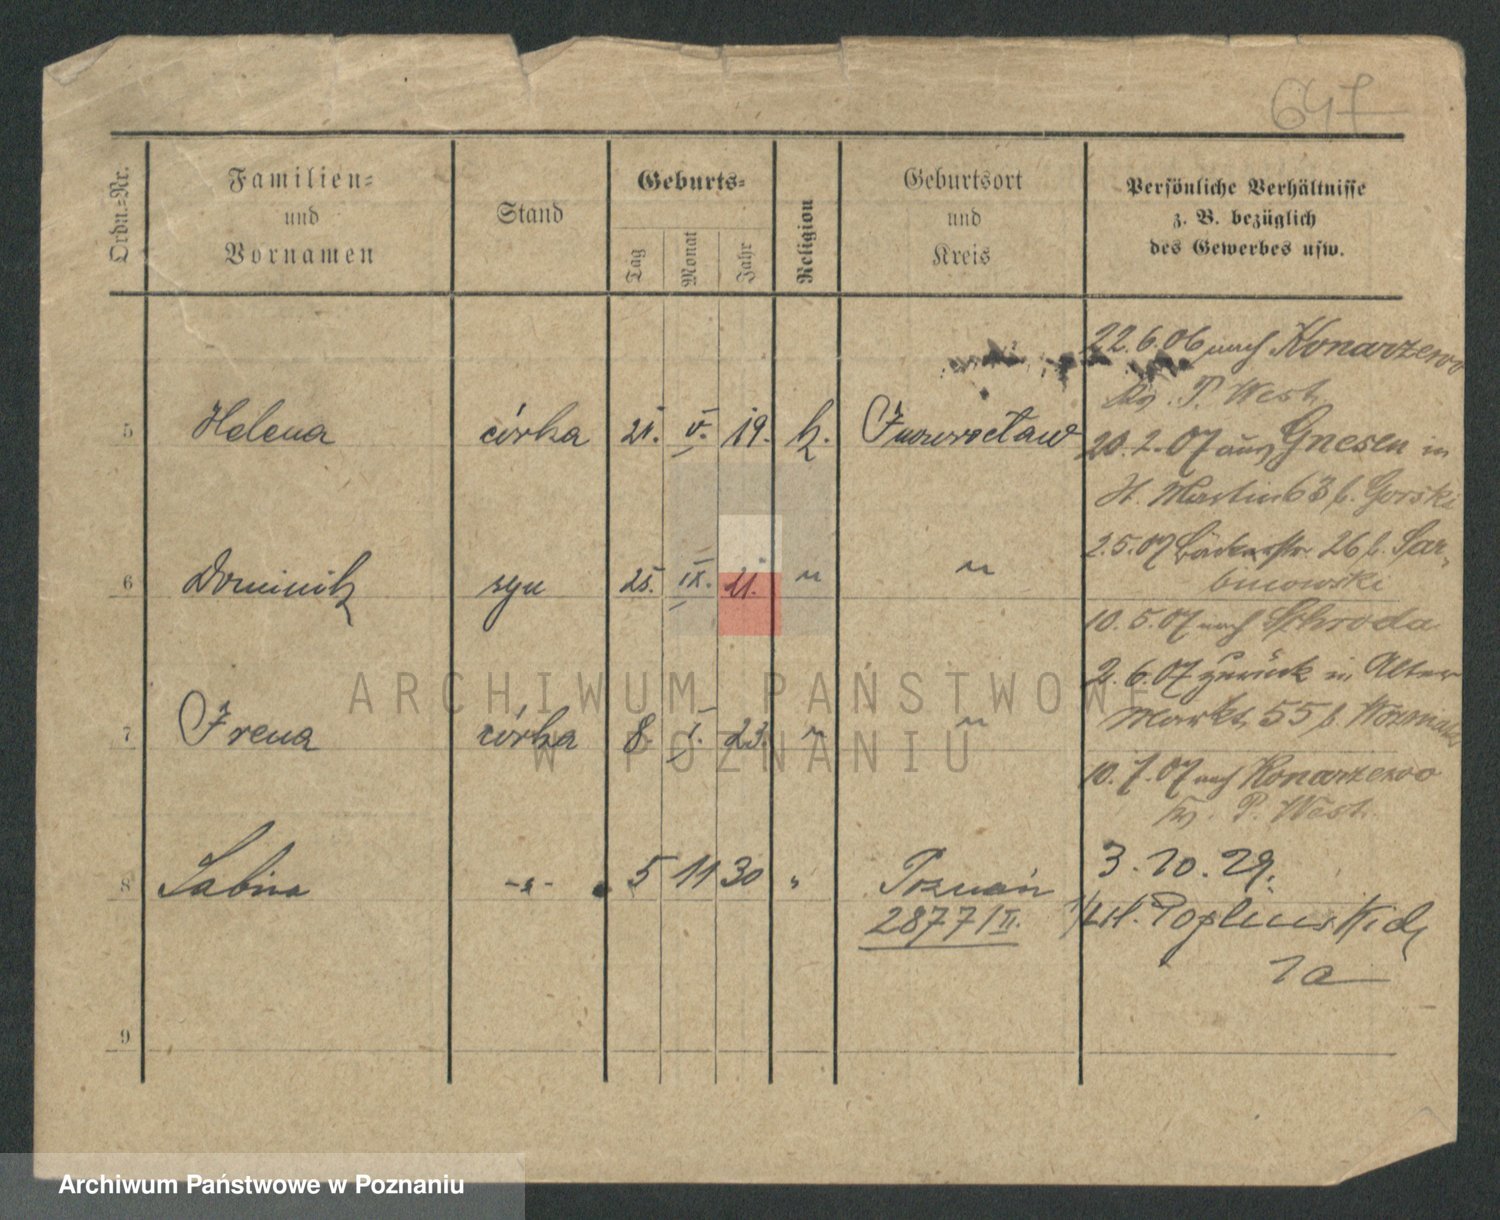 647
Ordn.-Nr.
Familien-
und
Vornamen
Stand
Geburts-
Tag
Monat
Jahr
Religion
Geburtsort
und
Kreis
Persönliche Verhältnisse
z. B. bezüglich
des Gewerbes usw.
22.6.06 nach Konarzewo
P. West
5 Helena córka 21. V. 19. k. Inowrocław
20.2.07 aus Gnesen in
St. Martin 63 b. Gorski
2.5.07 Bäckerstr. 26 b. Sar-
binowski
6 Dominik syn 25. IX. 21. " "
10.5.07 nach Schroda
2.6.07 zurück in Alter
Markt 55 b. Wozniak
7 Irena córka 8 I. 23. " "
10.7.07 nach Konarzewo
P. West.
8 Sabina -"- 5 11 30 " Poznań
2877/II.
3.10.29.
Poplińskich
1a
9
ARCHIWUM PAŃSTWOWE
W POZNANIU
Archiwum Państwowe w Poznaniu